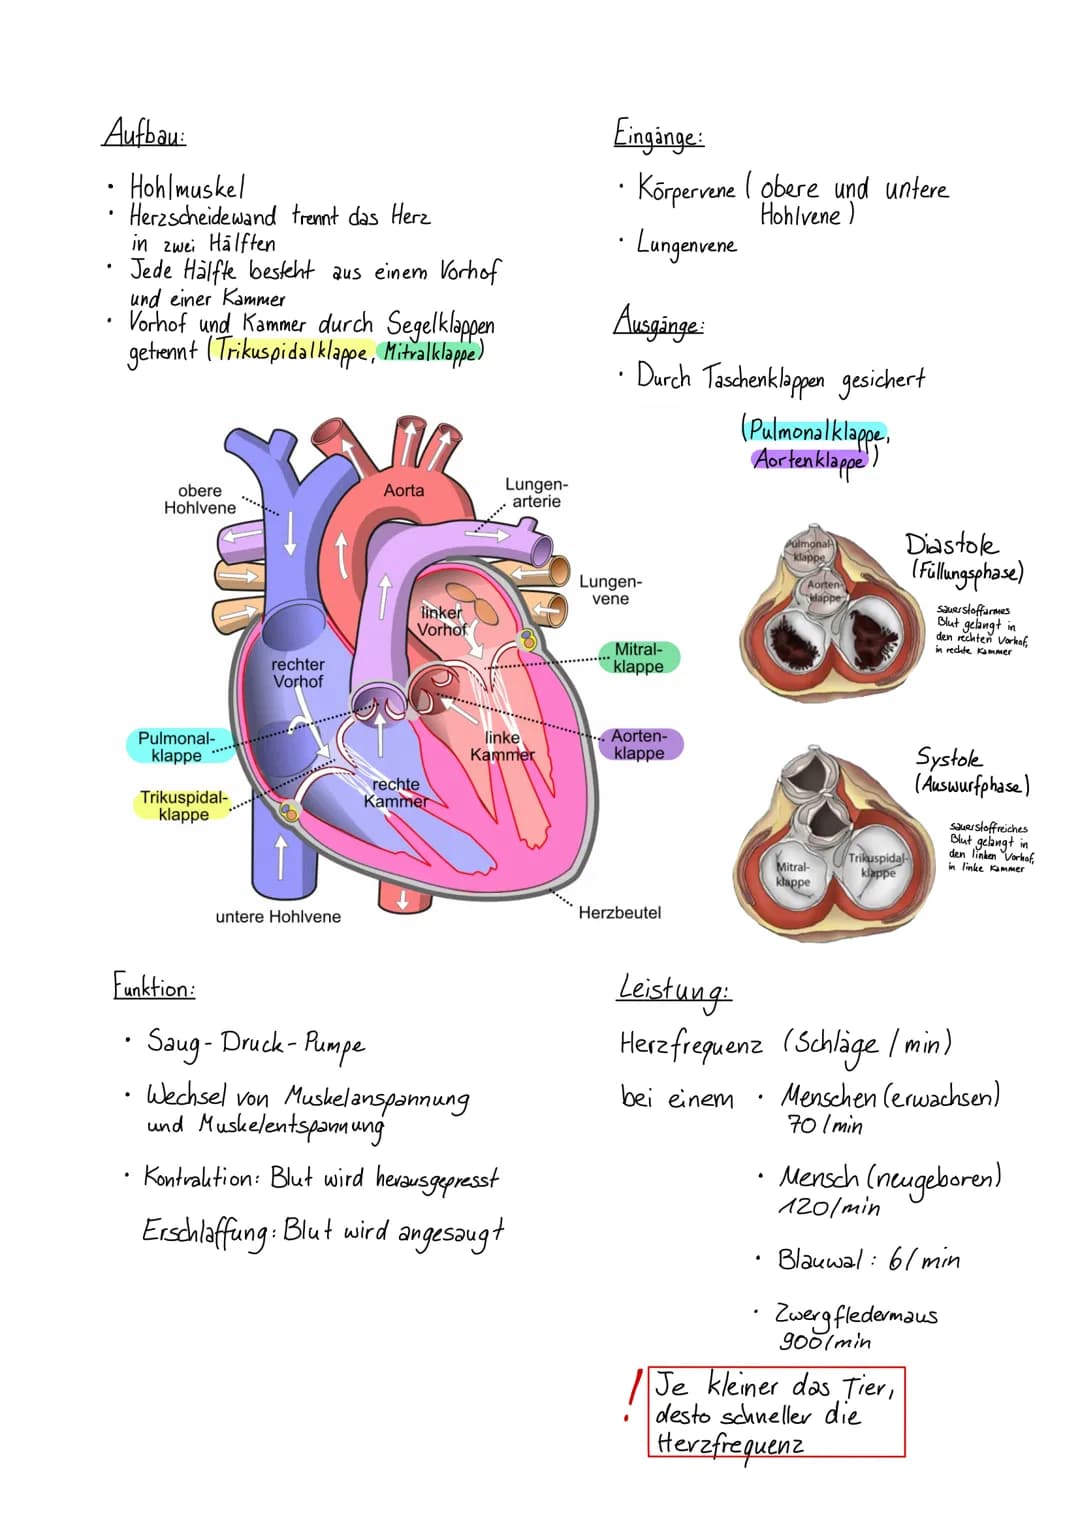 Aufbau:
• Hohlmuskel
• Herzscheidewand trennt das Herz
in zwei Hälften
• Jede Hälfte besteht aus einem Vorhof
und einer Kammer
• Vorhof und Kammer durch Segelklappen
getrennt (Trikuspidalklappe, Mitralklappe)
Eingänge:
• Körpervene (obere und untere
Hohlvene)
• Lungenvene
Ausgänge:
• Durch Taschenklappen gesichert
(Pulmonalklappe,
Aortenklappe)
obere
Hohlvene
Aorta
Lungen-
arterie
Lungen-
vene
linker
Vorhof
rechter
Vorhof
Mitral-
klappe
Pulmonal-
klappe
linke
Kammer
Aorten-
klappe
Trikuspidal-
klappe
rechte
Kammer
untere Hohlvene
Herzbeutel
Pulmonal-
klappe
Aorten-
klappe
Diastole
(Füllungsphase)
sauerstoffarmes
Blut gelangt in
den rechten Vorhof,
in rechte Kammer
Systole
(Auswurfphase)
sauerstoffreiches
Blut gelangt in
den linken Vorhof,
in linke Kammer
Mitral-
klappe
Trikuspidal-
klappe
Funktion:
• Saug-Druck-Pumpe
• Wechsel von Muskelanspannung
und Muskelentspannung
• Kontraktion: Blut wird herausgepresst
Erschlaffung: Blut wird angesaugt
Leistung:
Herzfrequenz (Schläge/min)
bei einem • Menschen (erwachsen)
70/min
• Mensch (neugeboren)
120/min
• Blauwal: 6/min
• Zwergfledermaus
900/min
! Je kleiner das Tier,
desto schneller die
Herzfrequenz